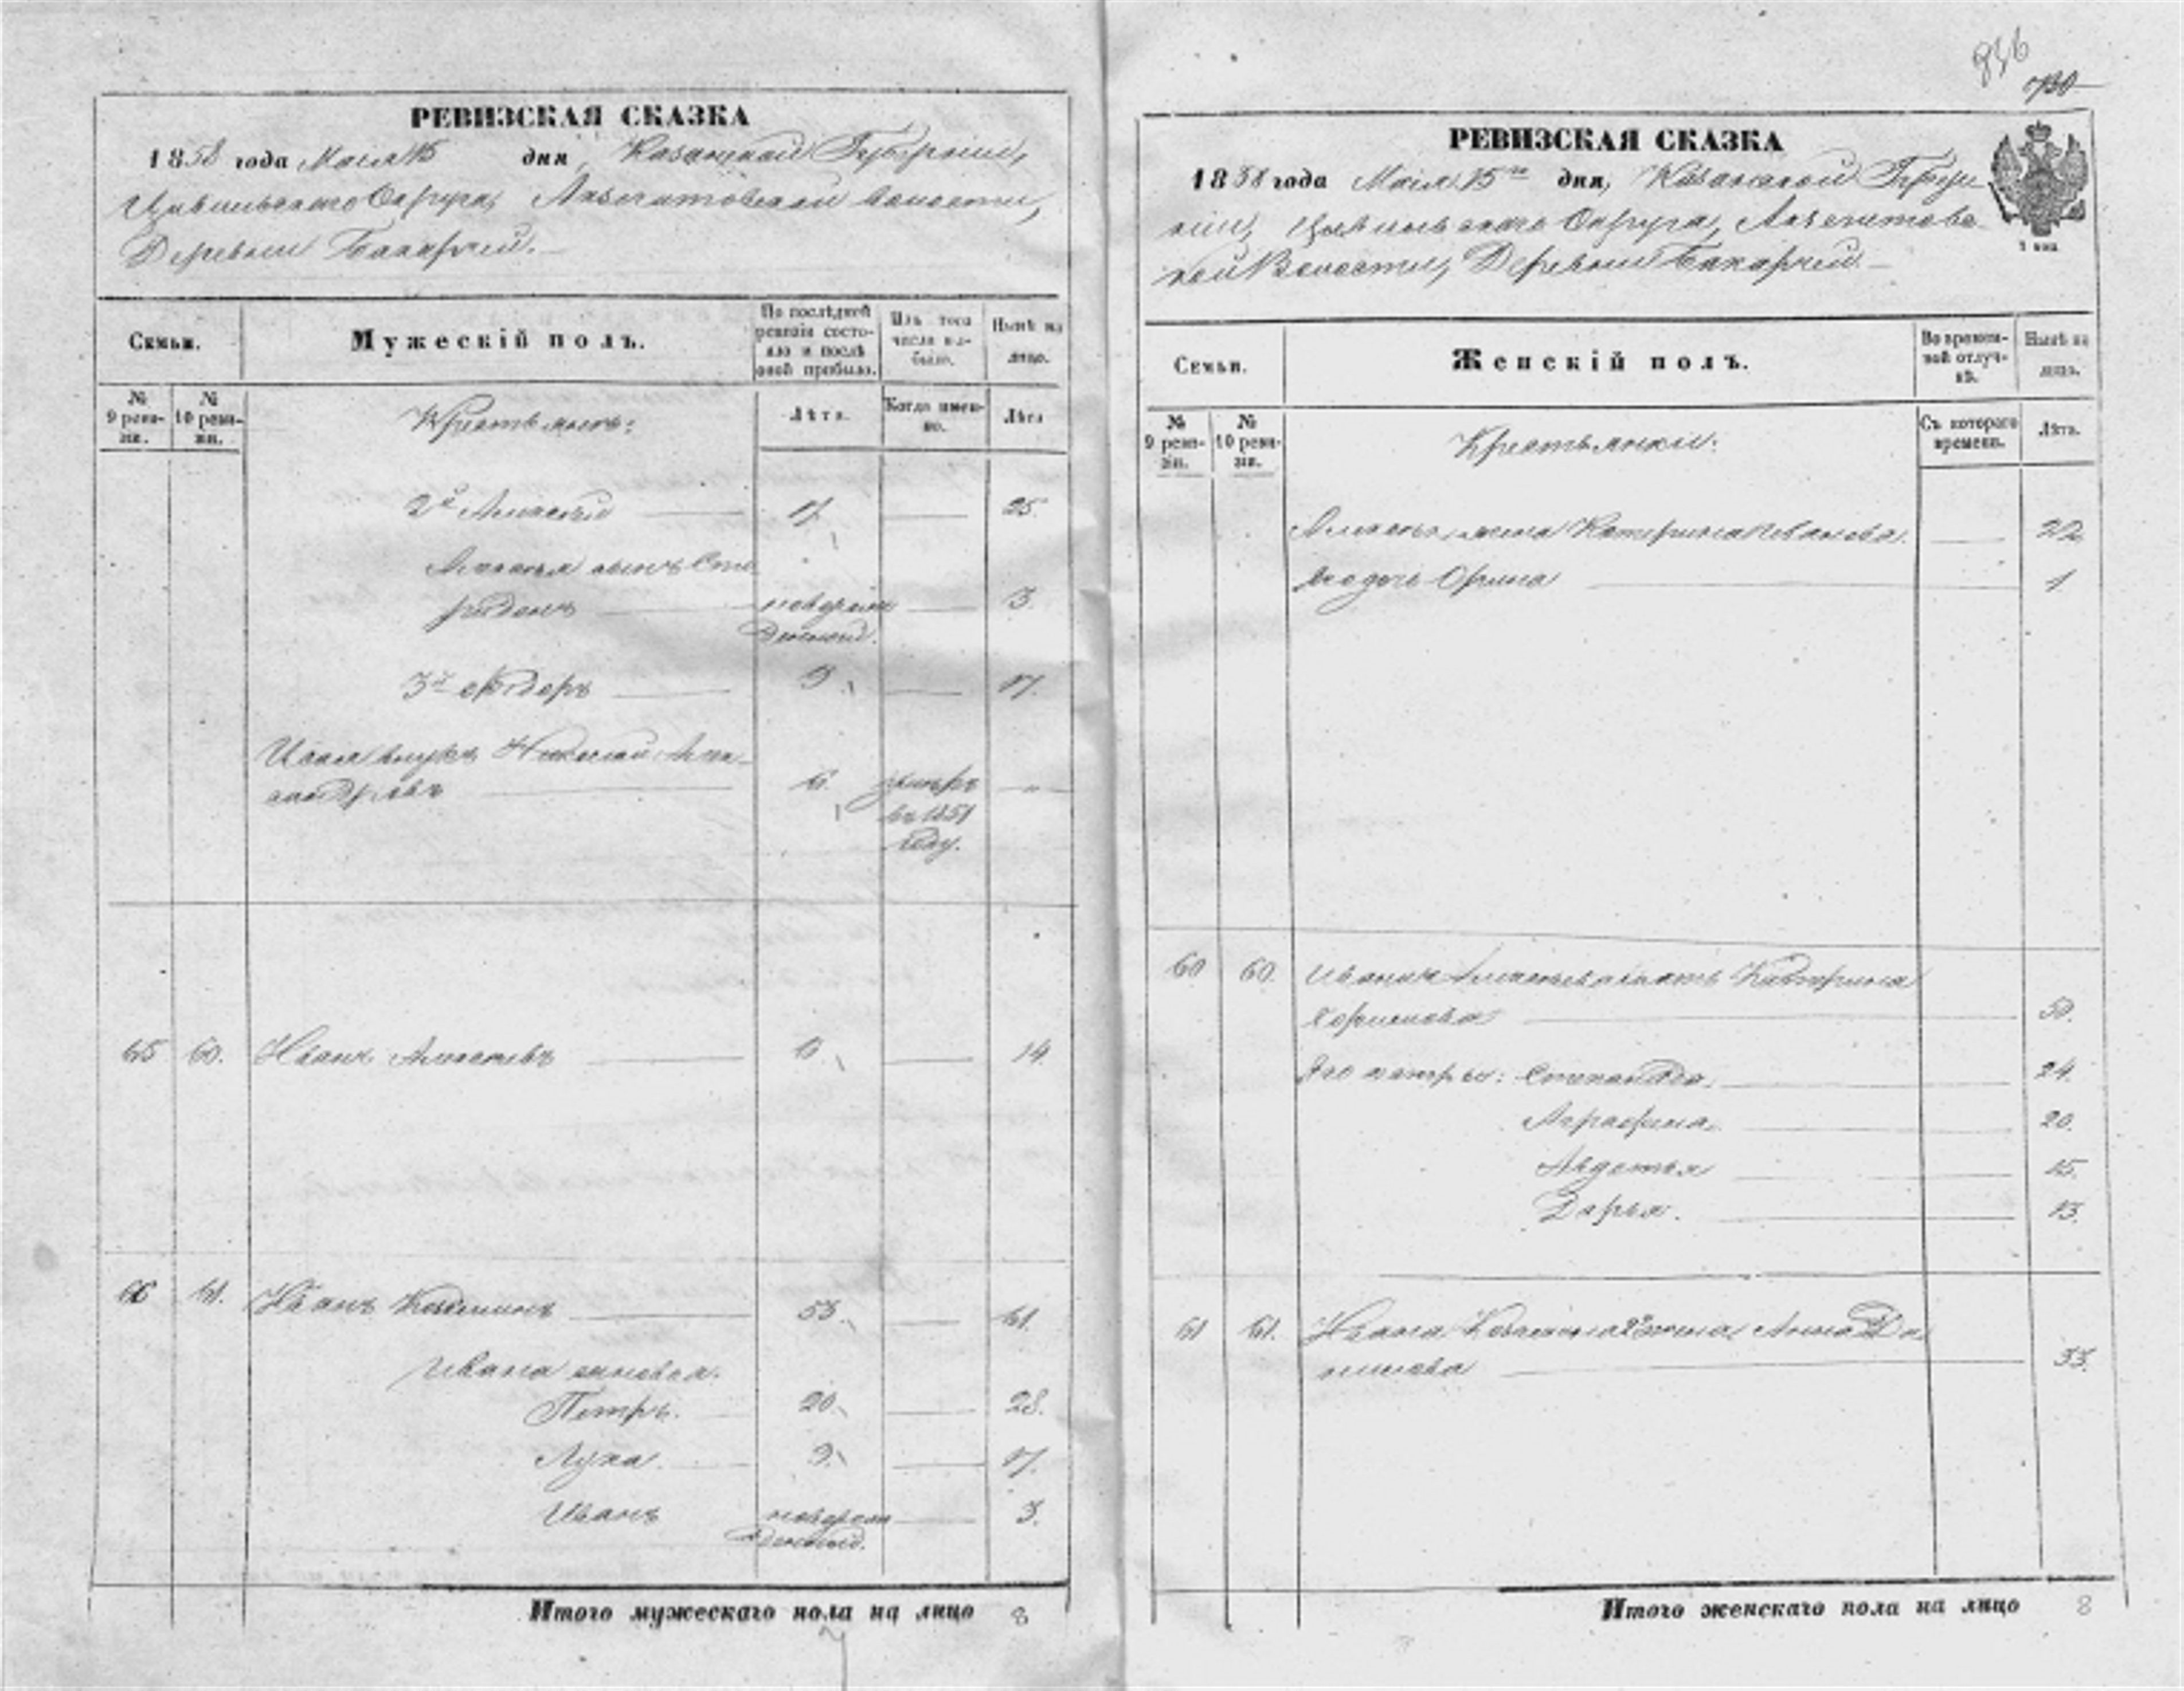 846
730
РЕВИЗСКАЯ СКАЗКА
1858 года Маія 15 дня, Казанской Губерніи,
Цивильскаго Округа, волости,
Деревни
Семьи.
Мужескій полъ.
По послѣдней ревизіи состояло и послѣ оной прибыло.
Изъ того числа выбыло.
Нынѣ на лицо.
№ 9 ревизіи.
№ 10 ревизіи.
Крестьянъ:
Лѣта.
Когда именно.
Лѣта
2й Алексѣй 17. 25.
сынъ Спи
ридонъ новорож 3.
денный.
3й Ѳедоръ 9. 17.
внукъ Николай Алек
сандровъ 6. умеръ "
въ 1851
году.
65 60. Иванъ 14.
66 61. Иванъ 53. 61.
Ивана сыновья.
Петръ. 20. 28.
Лука. 9. 17.
Иванъ новорож 3.
денный.
Итого мужескаго пола на лицо 8
РЕВИЗСКАЯ СКАЗКА
1858 года Маія 15го дня, Казанской Губер
ніи, Цивильскаго Округа,
кой Волости, Деревни
Семьи.
Женскій полъ.
Во временной отлучкѣ.
Нынѣ на лицо.
№ 9 ревизіи.
№ 10 ревизіи.
Крестьянки:
Съ котораго времени.
Лѣта.
жена Катерина Иванова. 22
Его дочь Орина 1
60 60. Ивана мать Катерина
50.
Его сестры: Степанида. 24.
Аграфина. 20.
Авдотья 15.
Дарья. 13.
61 61. Ивана жена Анна Да
нилова 33.
Итого женскаго пола на лицо 8